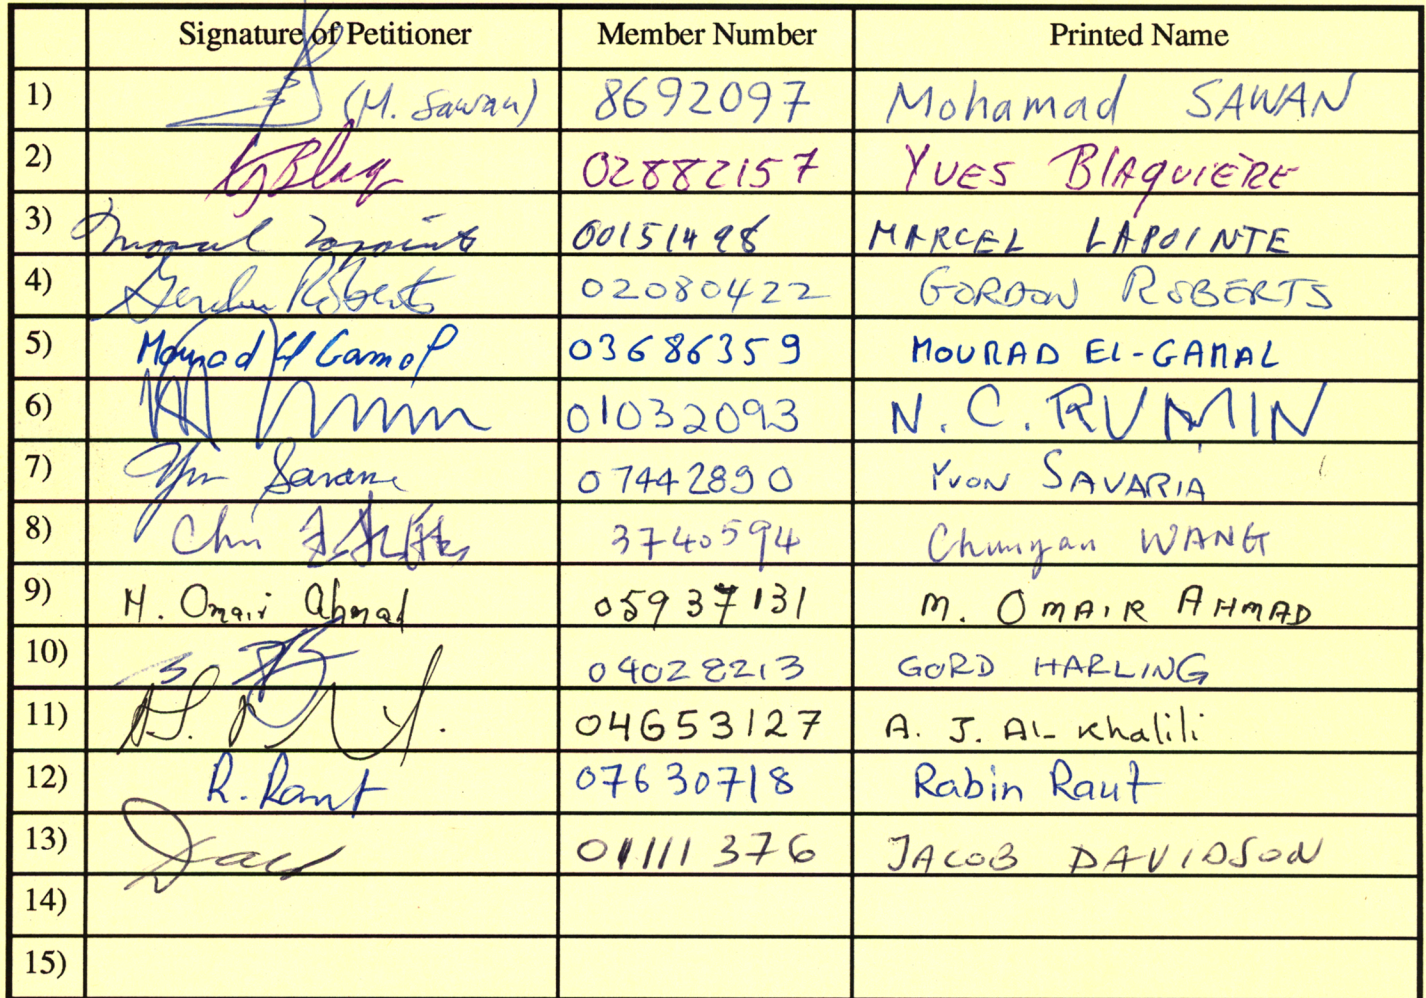 Signature of Petitioner Member Number Printed Name
1) (M. Sawan) 8692097 Mohamad SAWAN
2) YBlaq 02882157 YVES BlAQUIÈRE
3) Marcel Lapointe 00151498 MARCEL LAPOINTE
4) Gordon Roberts 02080422 GORDON ROBERTS
5) Mourad El Gamal 03686359 MOURAD EL-GAMAL
6) 01032093 N. C. RUMIN
7) Yvon Savaria 07442890 YVON SAVARIA
8) Chu 3740594 Chunyan WANG
9) M. Omair Ahmad 05937131 M. OMAIR AHMAD
10) 04028213 GORD HARLING
11) 04653127 A. J. Al-Khalili
12) R. Raut 07630718 Rabin Raut
13) 01111376 JACOB DAVIDSON
14)
15)